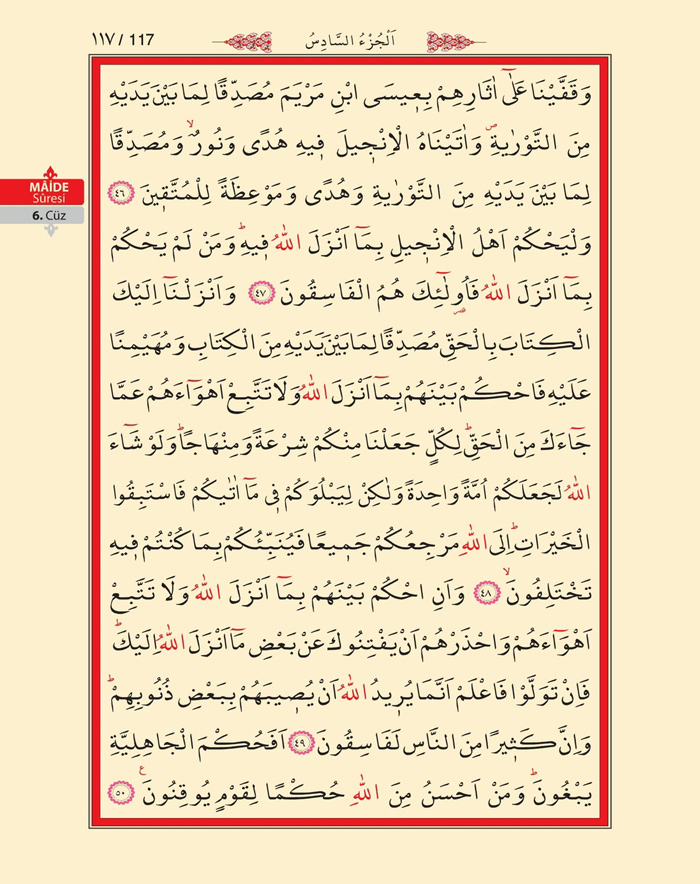 ١١٧ / 117
اَلْجُزْءُ السَّادِسُ
MÂİDE
Sûresi
6. Cüz
وَقَفَّيْنَا عَلٰٓى اٰثَارِهِمْ بِعِيسَى ابْنِ مَرْيَمَ مُصَدِّقًا لِمَا بَيْنَ يَدَيْهِ
مِنَ التَّوْرٰيةِۖ وَاٰتَيْنَاهُ الْاِنْجِيلَ فِيهِ هُدًى وَنُورٌۙ وَمُصَدِّقًا
لِمَا بَيْنَ يَدَيْهِ مِنَ التَّوْرٰيةِ وَهُدًى وَمَوْعِظَةً لِلْمُتَّقِينَ ﴿٤٦﴾
وَلْيَحْكُمْ اَهْلُ الْاِنْجِيلِ بِمَٓا اَنْزَلَ اللّٰهُ فِيهِۜ وَمَنْ لَمْ يَحْكُمْ
بِمَٓا اَنْزَلَ اللّٰهُ فَاُو۬لٰٓئِكَ هُمُ الْفَاسِقُونَ ﴿٤٧﴾ وَاَنْزَلْنَٓا اِلَيْكَ
الْكِتَابَ بِالْحَقِّ مُصَدِّقًا لِمَا بَيْنَ يَدَيْهِ مِنَ الْكِتَابِ وَمُهَيْمِنًا
عَلَيْهِ فَاحْكُمْ بَيْنَهُمْ بِمَٓا اَنْزَلَ اللّٰهُ وَلَا تَتَّبِعْ اَهْوَٓاءَهُمْ عَمَّا
جَٓاءَكَ مِنَ الْحَقِّۜ لِكُلٍّ جَعَلْنَا مِنْكُمْ شِرْعَةً وَمِنْهَاجًاۜ وَلَوْ شَٓاءَ
اللّٰهُ لَجَعَلَكُمْ اُمَّةً وَاحِدَةً وَلٰكِنْ لِيَبْلُوَكُمْ فِي مَٓا اٰتٰيكُمْ فَاسْتَبِقُوا
الْخَيْرَاتِۜ اِلَى اللّٰهِ مَرْجِعُكُمْ جَمِيعًا فَيُنَبِّئُكُمْ بِمَا كُنْتُمْ فِيهِ
تَخْتَلِفُونَۙ ﴿٤٨﴾ وَاَنِ احْكُمْ بَيْنَهُمْ بِمَٓا اَنْزَلَ اللّٰهُ وَلَا تَتَّبِعْ
اَهْوَٓاءَهُمْ وَاحْذَرْهُمْ اَنْ يَفْتِنُوكَ عَنْ بَعْضِ مَٓا اَنْزَلَ اللّٰهُ اِلَيْكَۜ
فَاِنْ تَوَلَّوْا فَاعْلَمْ اَنَّمَا يُرِيدُ اللّٰهُ اَنْ يُصِيبَهُمْ بِبَعْضِ ذُنُوبِهِمْۜ
وَاِنَّ كَثِيرًا مِنَ النَّاسِ لَفَاسِقُونَ ﴿٤٩﴾ اَفَحُكْمَ الْجَاهِلِيَّةِ
يَبْغُونَۜ وَمَنْ اَحْسَنُ مِنَ اللّٰهِ حُكْمًا لِقَوْمٍ يُوقِنُونَ۟ ﴿٥٠﴾